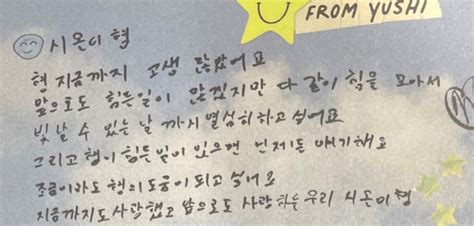 FROM YUSHI
시온이 형
형 지금까지 고생 많았어요
앞으로도 힘든일이 많겠지만 다 같이 힘을 모아서
빛날 수 있는 날 까지 열심히하고 싶어요
그리고 형이 힘든 일이 있으면 언제든 얘기해요
조금이라도 형의 도움이 되고 싶어요
지금까지도 사랑했고 앞으로도 사랑하는 우리 시온이 형